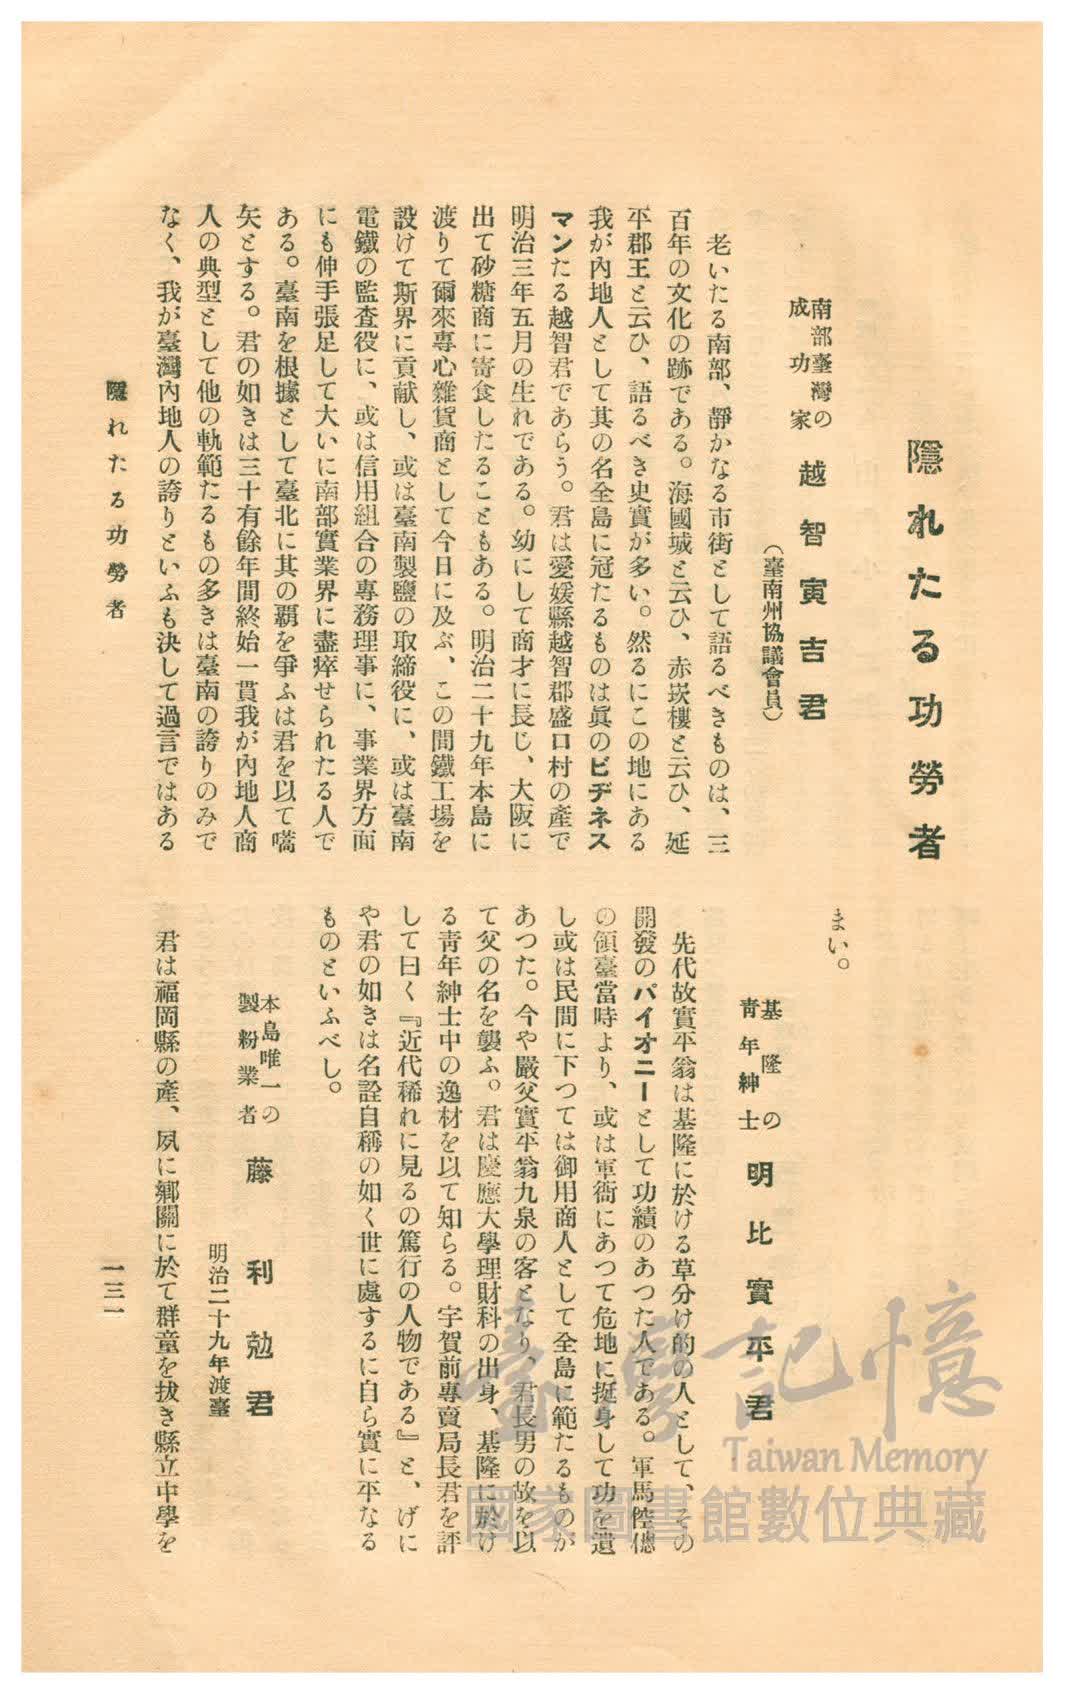 隱れたる功勞者
南部臺灣の
成功家
越智寅吉君
(臺南州協議會員)
老いたる南部、靜かなる市街として語るべきものは、三
百年の文化の跡である。海國城と云ひ、赤崁樓と云ひ、延
平郡王と云ひ、語るべき史實が多い。然るにこの地にある
我が內地人として其の名全島に冠たるものは眞のビヂネス
マンたる越智君であらう。君は愛媛縣越智郡盛口村の產で
明治三年五月の生れである。幼にして商才に長じ、大阪に
出て砂糖商に寄食したることもある。明治二十九年本島に
渡りて爾來專心雜貨商として今日に及ぶ、この間鐵工場を
設けて斯界に貢献し、或は臺南製鹽の取締役に、或は臺南
電鐵の監査役に、或は信用組合の專務理事に、事業界方面
にも伸手張足して大いに南部實業界に盡瘁せられたる人で
ある。臺南を根據として臺北に其の覇を爭ふは君を以て嚆
矢とする。君の如きは三十有餘年間終始一貫我が內地人商
人の典型として他の軌範たるもの多きは臺南の誇りのみで
なく、我が臺灣內地人の誇りといふも決して過言ではある
まい。
基隆の
靑年紳士
明比實平君
先代故實平翁は基隆に於ける草分け的の人として、その
開發のパイオニーとして功績のあつた人である。軍馬倥偬
の領臺當時より、或は軍衙にあつて危地に挺身して功を遺
し或は民間に下つては御用商人として全島に範たるものが
あつた。今や嚴父實平翁九泉の客となり、君長男の故を以
て父の名を襲ふ。君は慶應大學理財科の出身、基隆に於け
る靑年紳士中の逸材を以て知らる。宇賀前專賣局長君を評
して曰く『近代稀れに見るの篤行の人物である』と、げに
や君の如きは名詮自稱の如く世に處するに自ら實に平なる
ものといふべし。
本島唯一の
製粉業者
藤利勊君
明治二十九年渡臺
君は福岡縣の產、夙に鄕關に於て群童を拔き縣立中學を
隱れたる功勞者
一三一
臺灣記憶
Taiwan Memory
國家圖書館數位典藏